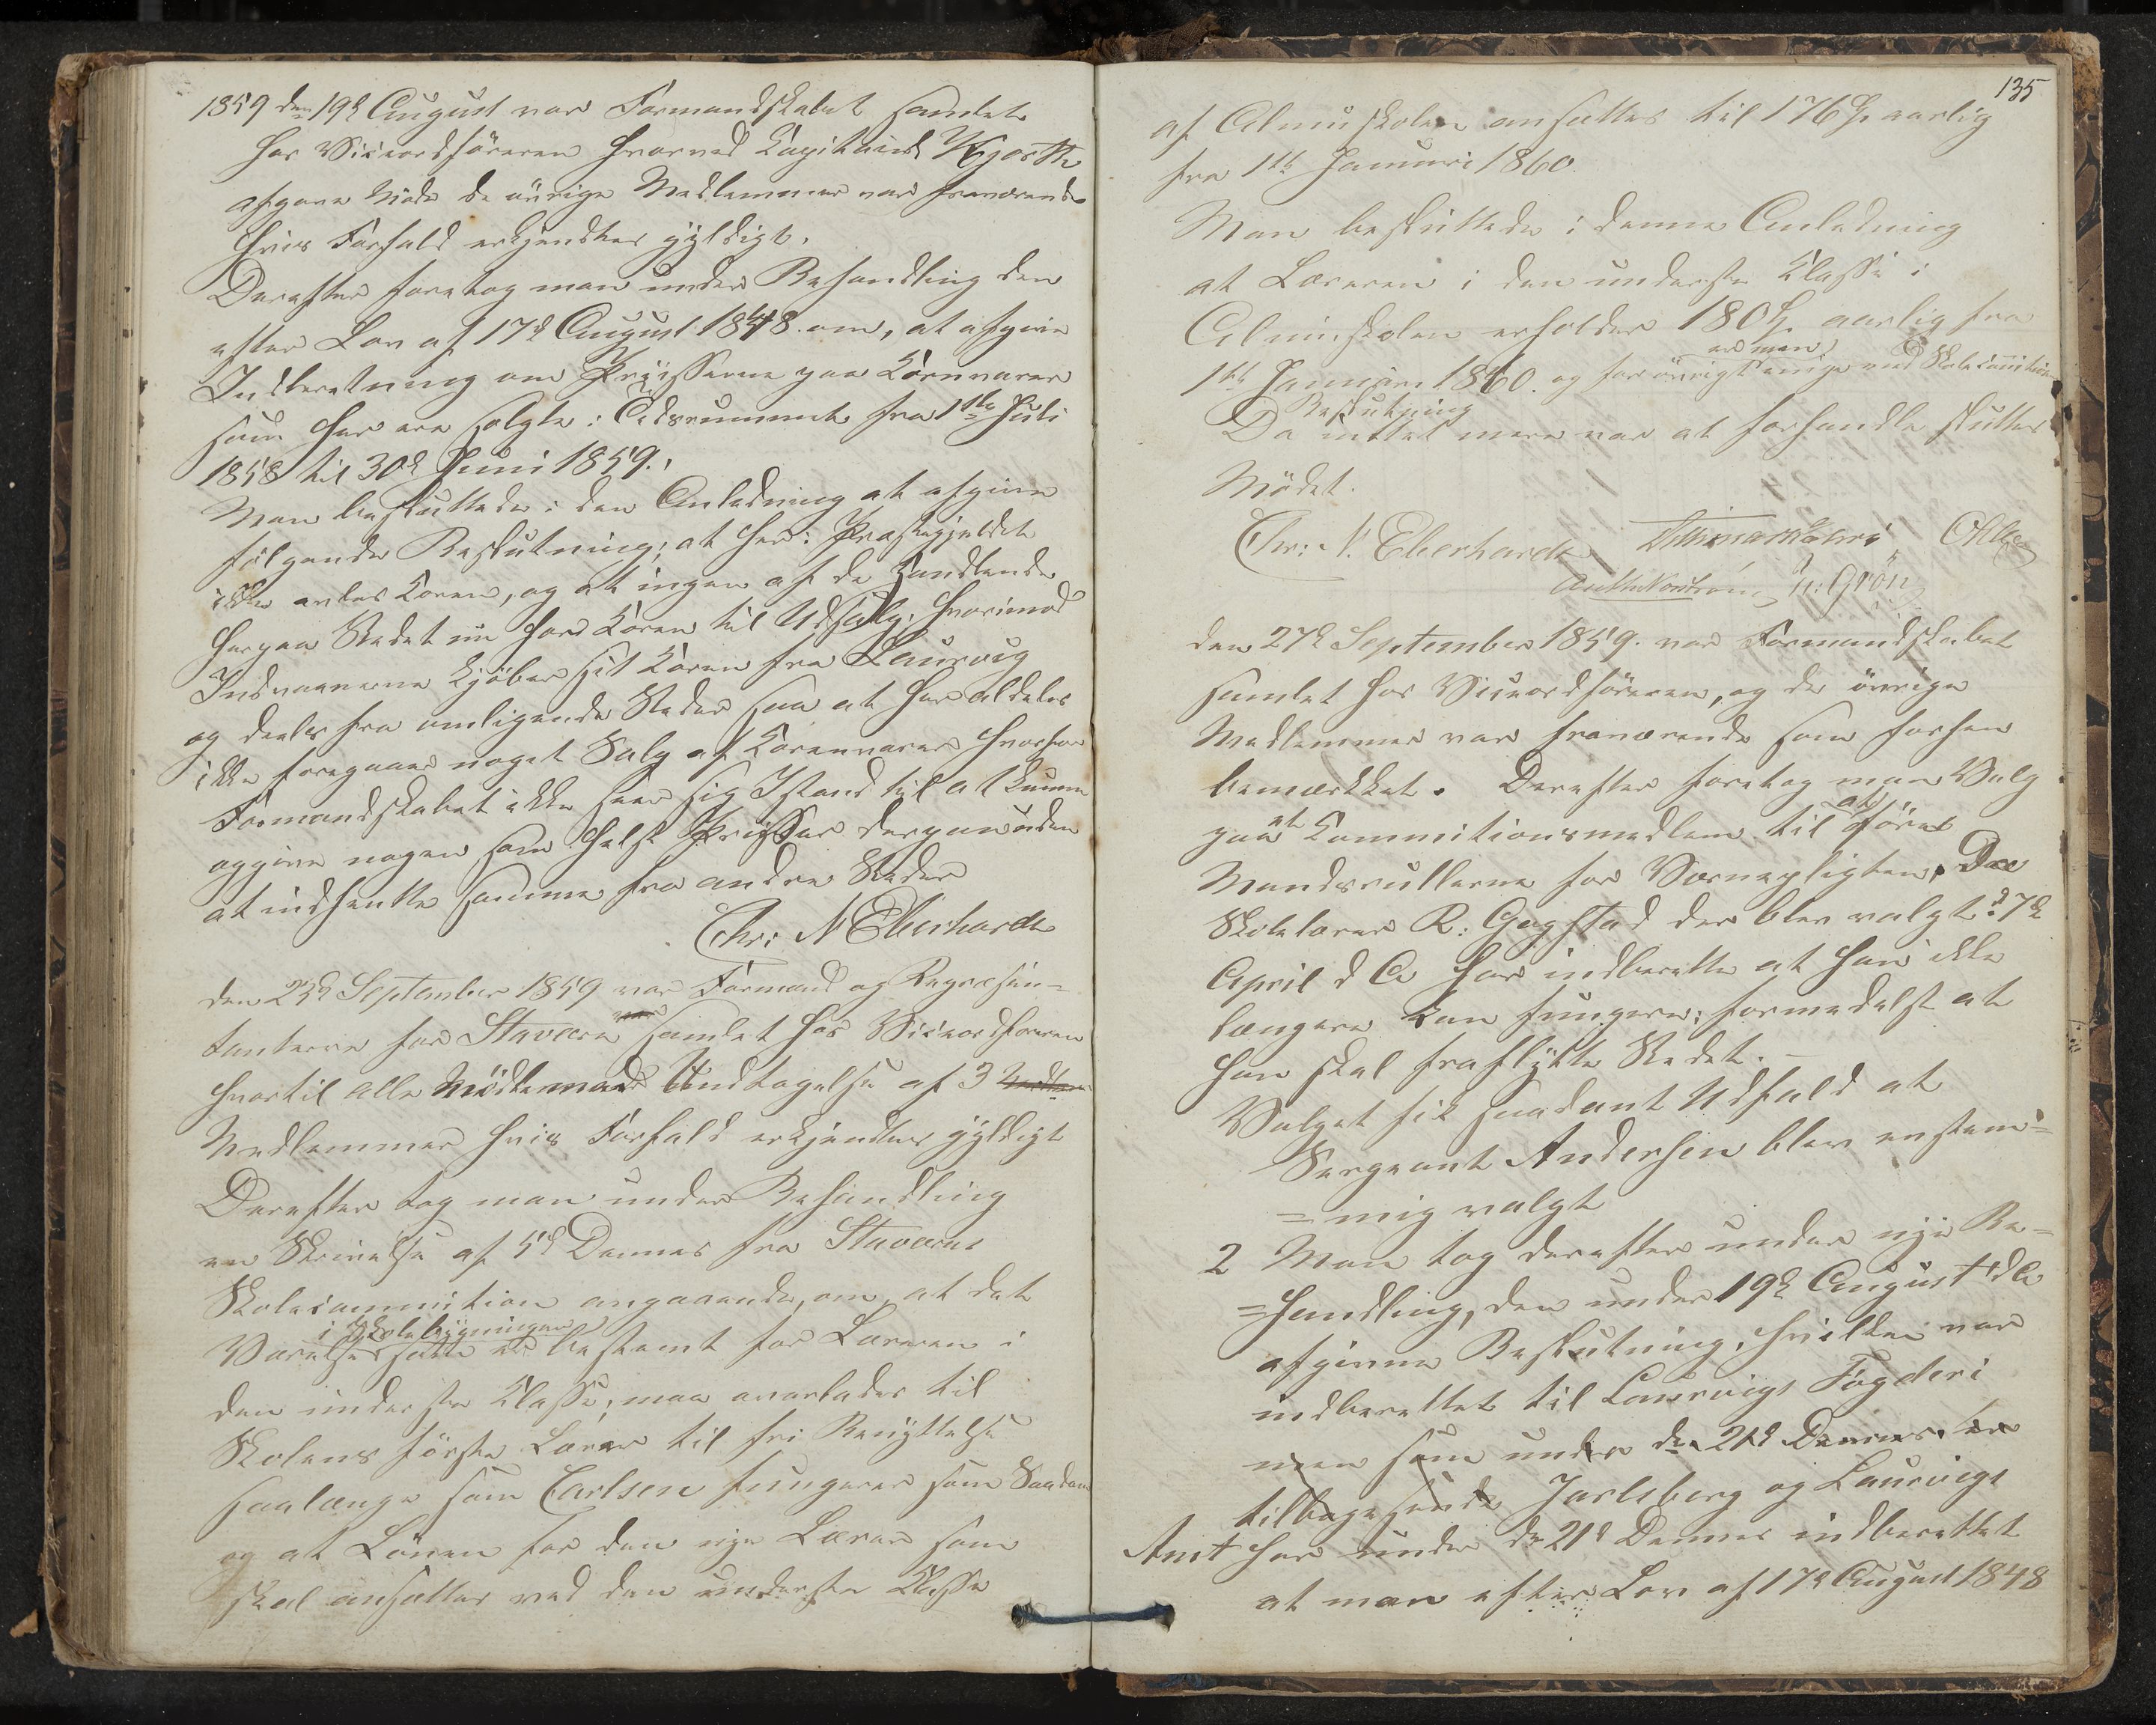 1859 den 19d August var Formandskabet samlet
hos Viceordföreren hvorved Kapitaind
afgave Möde de övrige Medlemmer var fraværende
hvis Forfald erkjendtes gyldigt.
Derefter foretog man under Behandling den
efter Lov af 17d August 1848. om, at afgive
Indberetning om Priisserne paa Kornvarer
som her ere solgte i Tidsrummet fra 1ste Juli
1858 til 30d Juni 1859.
Man besluttede i den Anledning at afgive
fölgende Beslutning; at her i Præstegjeldet
ikke avles Koren, og at ingen af de Handlende
herpaa Stedet nu har Koren til Udsalg. hvorimod
Indvaanerne kjöber sit Koren fra Laurvig
og deels fra omligende Steder saa at her aldeles
ikke foregaaer noget Salg af Korenvarer hvorfor
Formandskabet ikke seer sig Istand til at kunne
opgive nogen som helst Prisser derpaa uden
at indhente samme fra andre Steder
Chr: N Eberhardt
den 23d September 1859 var Formænd og Repræsen=
tanterne for Stavern samlet hos Viceordföreren
hvortil alle Mödte med Undtagelse af 3
Medlemmer hvis Forfald erkjendtes gyldigt
Derefter tog man under Behandling
en Skrivelse af 5d Dennes fra Staverns
Skolecommition angaaende, om, at det
i Skolebygningen
Værelse som er bestemt for Læreren i
den underste Klasse, maa overlades til
Skolens förste Lærer til fri Benyttelse
saalænge som Carlsen fungerer som Saadan
og at Lönen for den nye Lærer som
skal ansættes ved den underste Klasse
135
af Almuskolen ansættes til 176 aarlig
fra 1ste Januari 1860.
Man besluttede i denne Anledning
at Læreren i den underste Klasse i
Almuskolen erholder 180 aarlig fra
er man
1ste Januari 1860. og forövrigt enige med Skolecommitionens
Beslutning
Da intet mere var at forhandle sluttes
Mödet.
Chr: N. Eberhardt
N: Grön
den 27d September 1859. var Formandskabet
samlet hos Viceordföreren, og de övrige
Medlemmer var fraværende som forhen
bemærkket. Derefter foretog man Valg
paa et Kommitionsmedlem til at före
Mandsrullerne for Værnepligten. Da
Skolelærer R: Gogstad der blev valgt d: 7d
April d A har indberette at han ikke
længere kan fungere; formedelst at
han skal fraflytte Stedet. —
Valget fik saadant Udfald at
Sergeant Andersen blev enstem=
=mig valgt
2 Man tog derefter under nye Be=
=handling, den under 19d August
afgivne Beslutning, hvilken var
indberettet til Laurvigs Fogderi
men som under den 21d Dennes er
tilbagesendt Jarlsberg og Laurvigs
Amt har under dn 21d Dennes indberettet
at man efter Lov af 17d August 1848